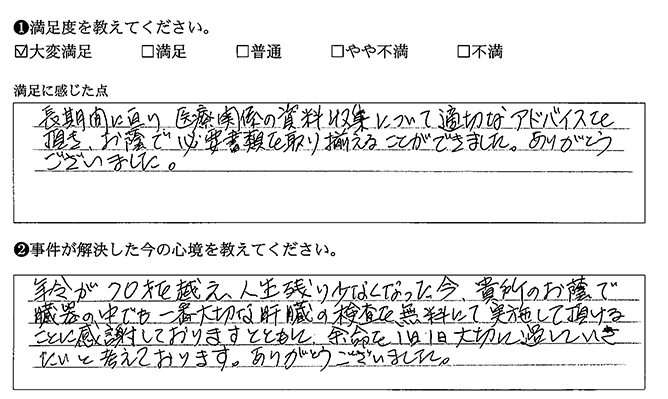 ❶満足度を教えてください。
☑大変満足 □満足 □普通 □やや不満 □不満
満足に感じた点
長期間に亘り 医療関係の資料収集について適切なアドバイスを
頂き、お蔭で必要書類を取り揃えることができました。ありがとう
ございました。
❷事件が解決した今の心境を教えてください。
年令が70才を越え、人生残り少なくなった今、貴所のお蔭で
臓器の中でも一番大切な肝臓の検査を無料にて実施して頂ける
ことに感謝しておりますとともに、余命を1日1日大切に過していき
たいと考えております。ありがとうございました。